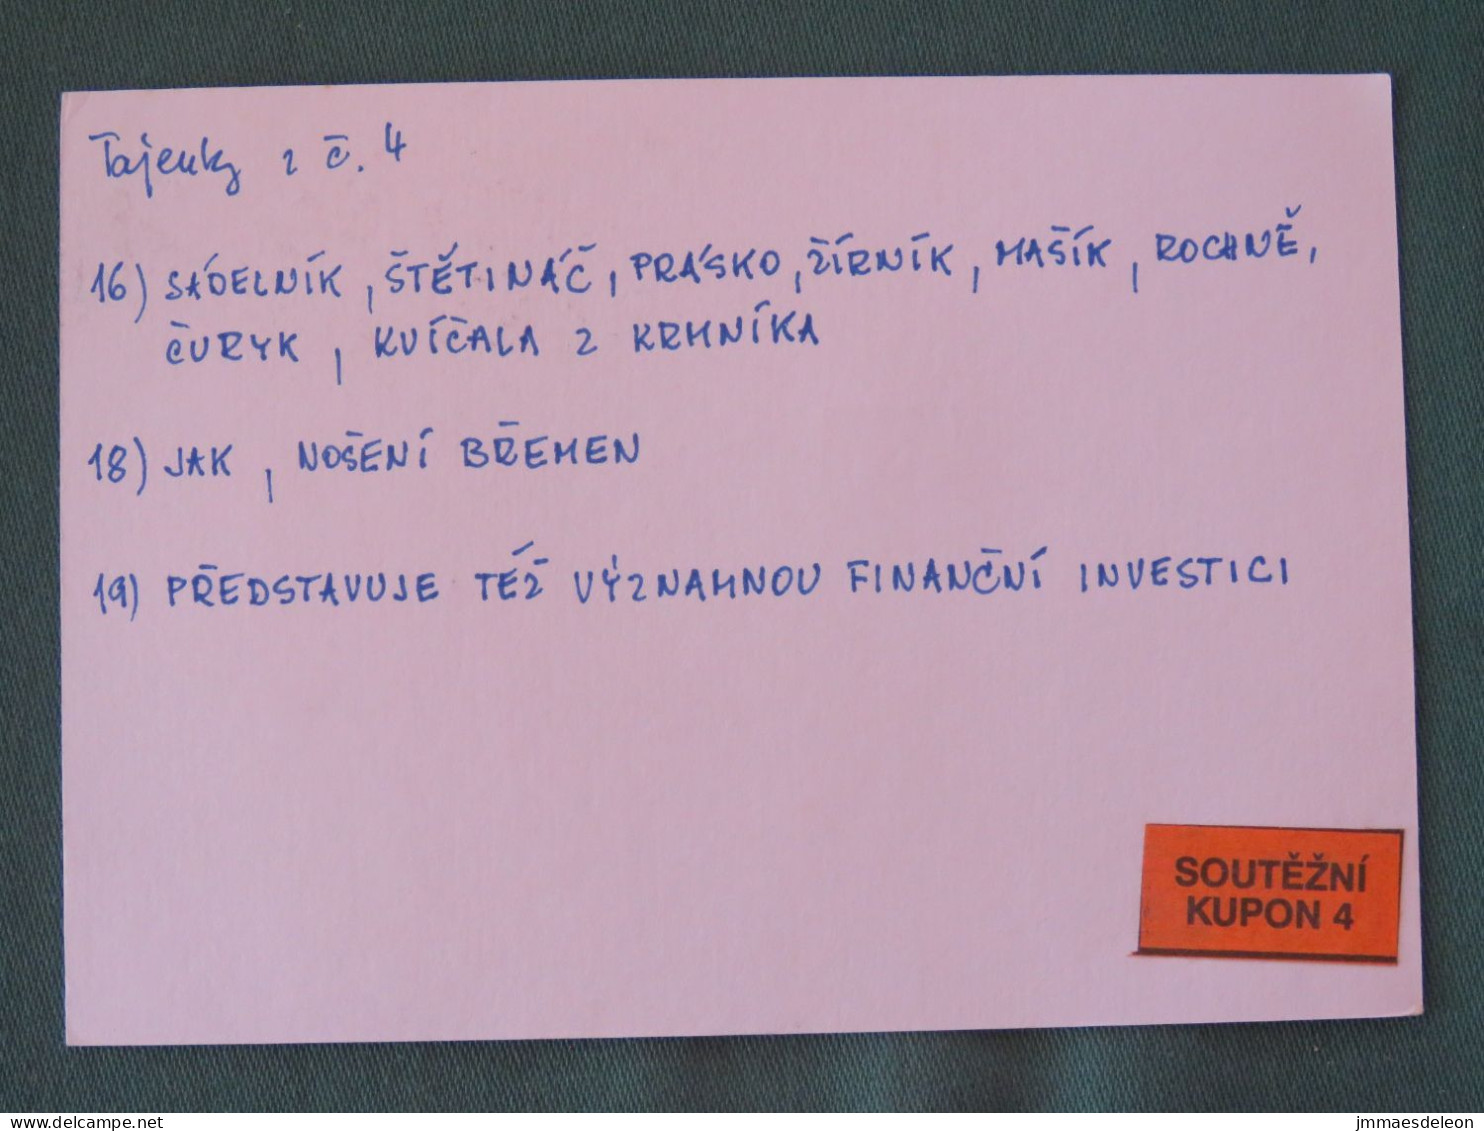 Tajenky z č. 4
16) SÁDELNÍK, ŠTĚTINÁČ, PRÁSKO, ŽÍRNÍK, MAŠÍK, ROCHNĚ,
ČURYK, KVÍČALA Z KRMNÍKA
18) JAK, NOŠENÍ BŘEMEN
19) PŘEDSTAVUJE TÉŽ VÝZNAMNOU FINANČNÍ INVESTICI
SOUTĚŽNÍ
KUPON 4
www.delcampe.net
jmmaesdeleon